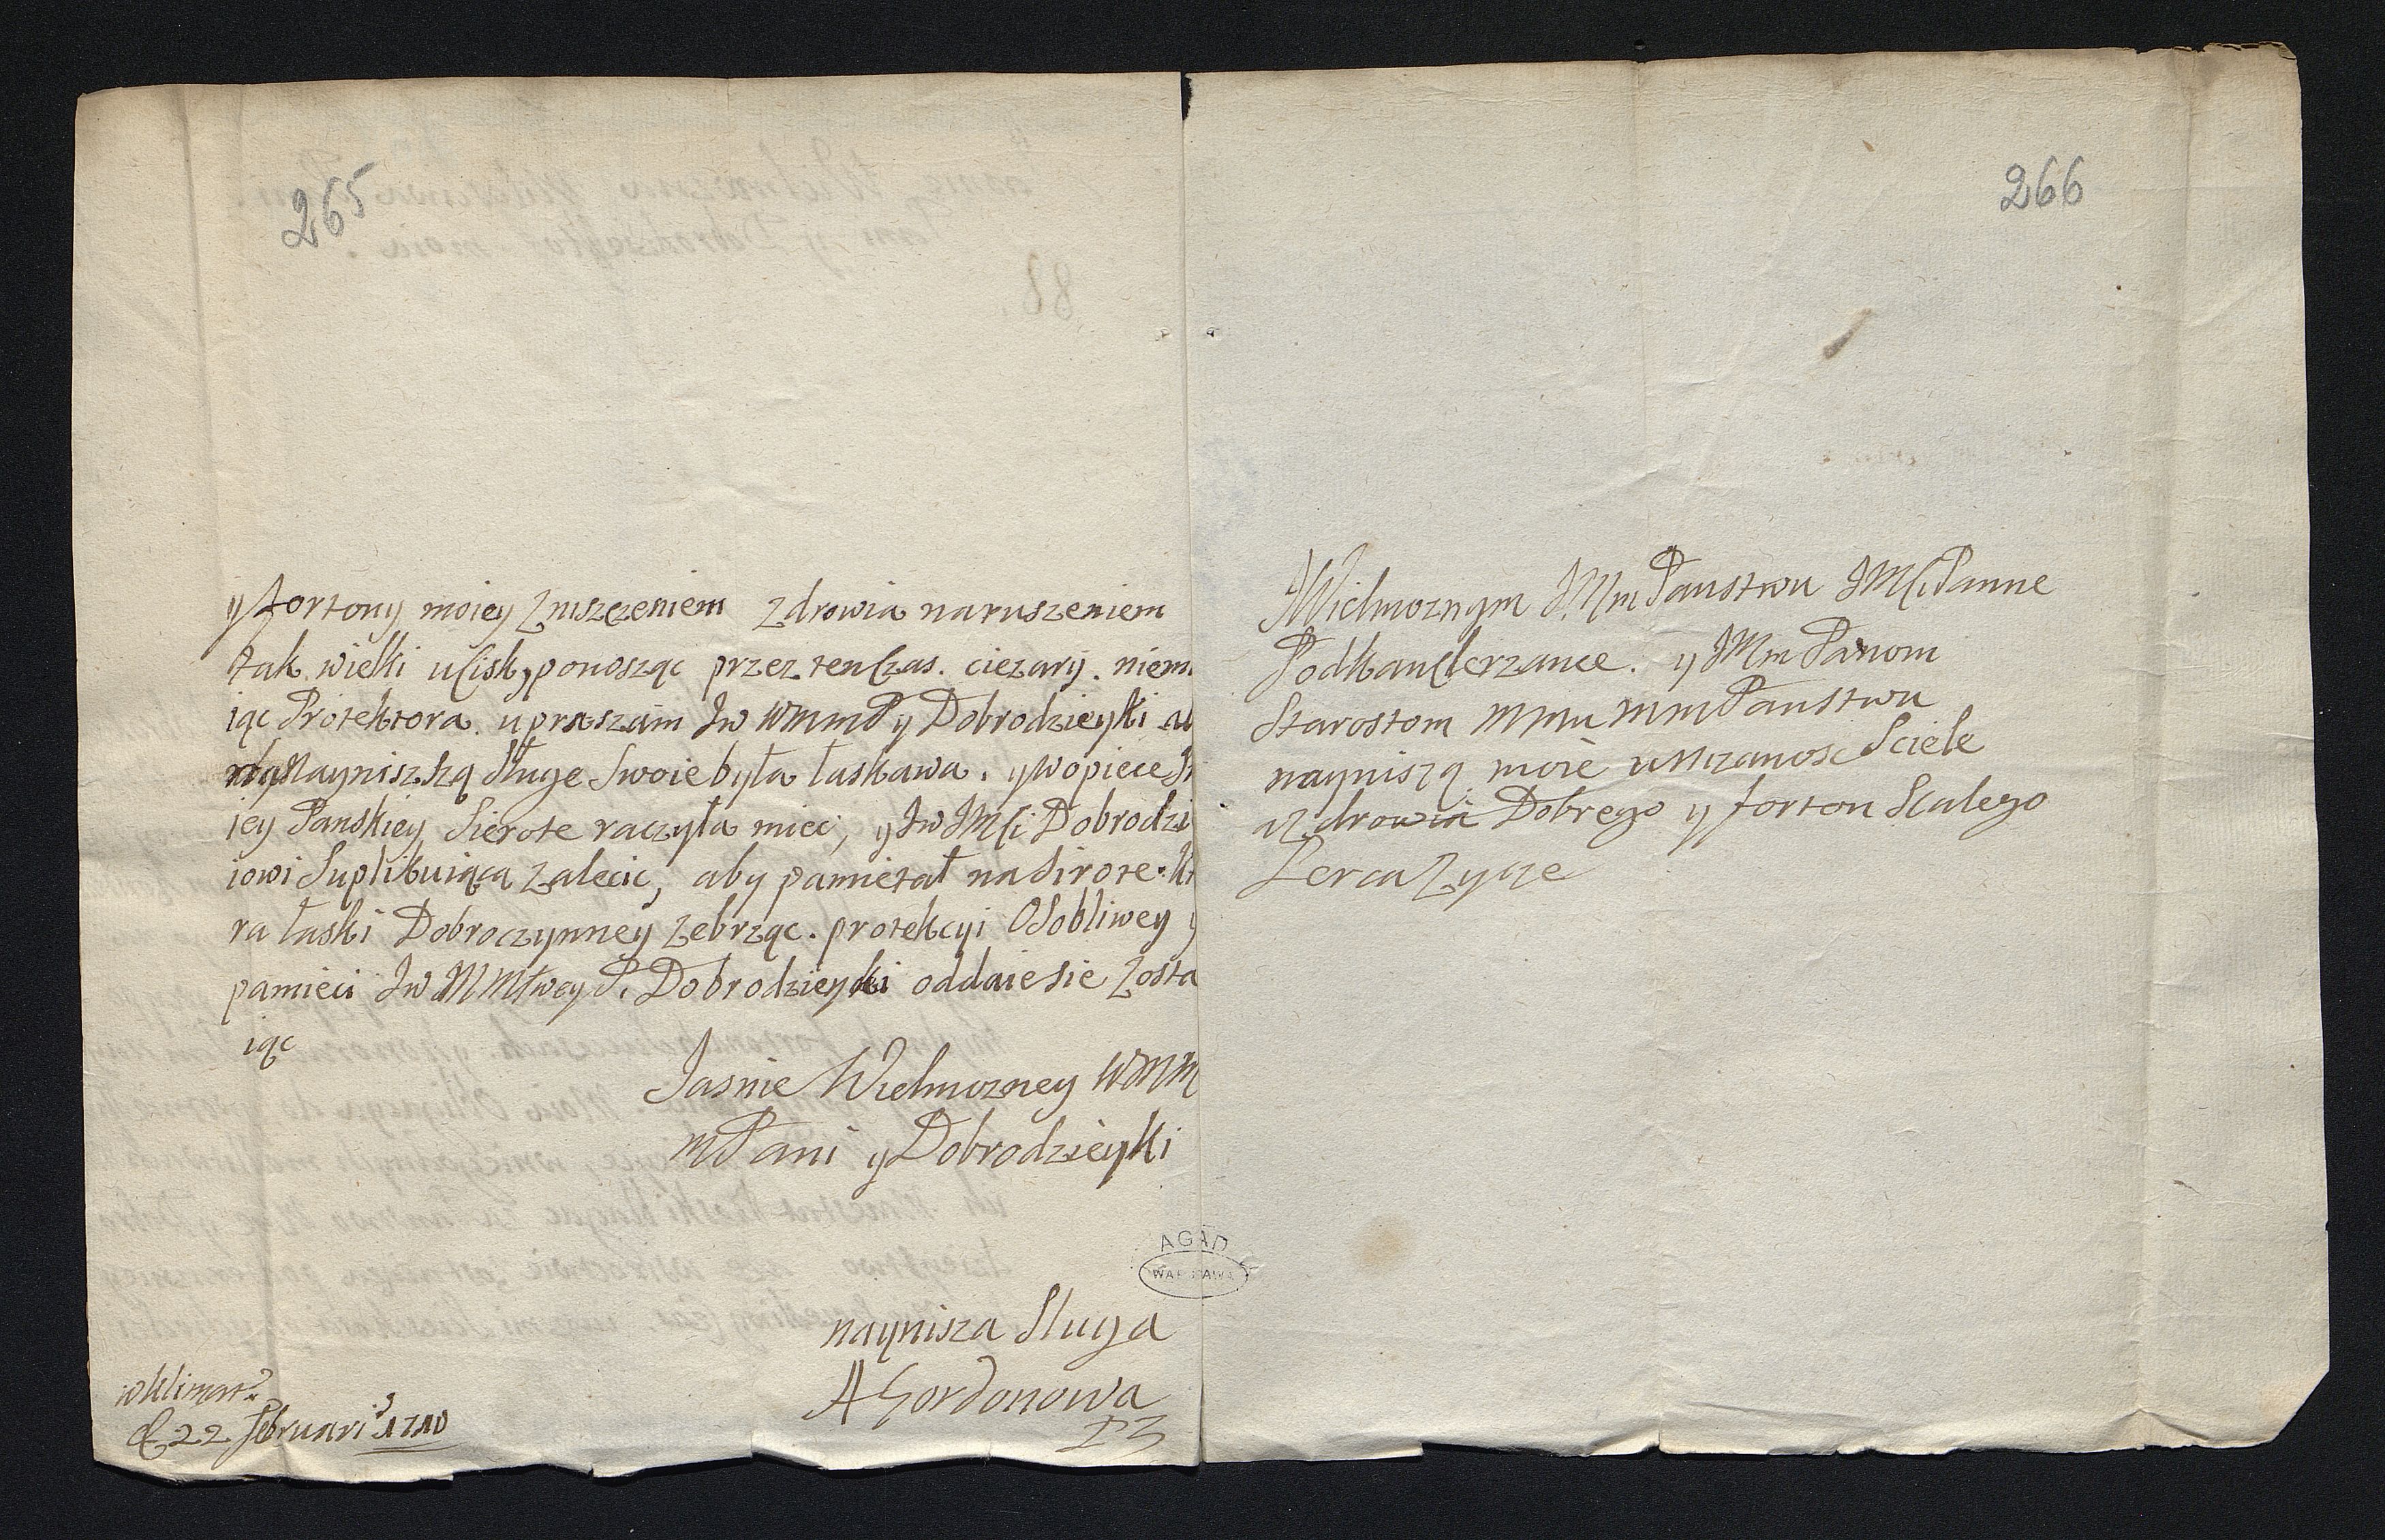 265
y fortony moiey zniszczeniem zdrowia naruszeniem
tak wielki ucisk, ponosząc przez ten czas. ciezary. niem
iąc Protektora. upraszam Jw WmmP y Dobrodzieyki ab
nayniszszą Sługe Swoie była łaskawa. y w opiece Sw
iey Panskiey Sierote raczyła miec, y Jw JMCi Dobrodzi
iowi Suplikuiąca zalecic, aby pamietał na Sirote. kt
ra łaski Dobroczynney zebrząc. protekcyi Osobliwey y
pamieci Jw MMłwey P. Dobrodzieyki oddaie sie zosta
iąc
Jasnie Wielmozney WMM
mPani y Dobrodzieyki
naynisza Sluga
A Gordonowa
P3
w Klimont:
d 22 February 1710
AGAD
WARSZAWA
266
Wielmoznym JMm Panstwu JMCi Panne
Podkanclerzance. y JMm Panom
Starostom Mmu MmPanstwu
nayniszą moie unizanosc Sciele
zdrowia Dobrego y forton Stalego
Serca zycze